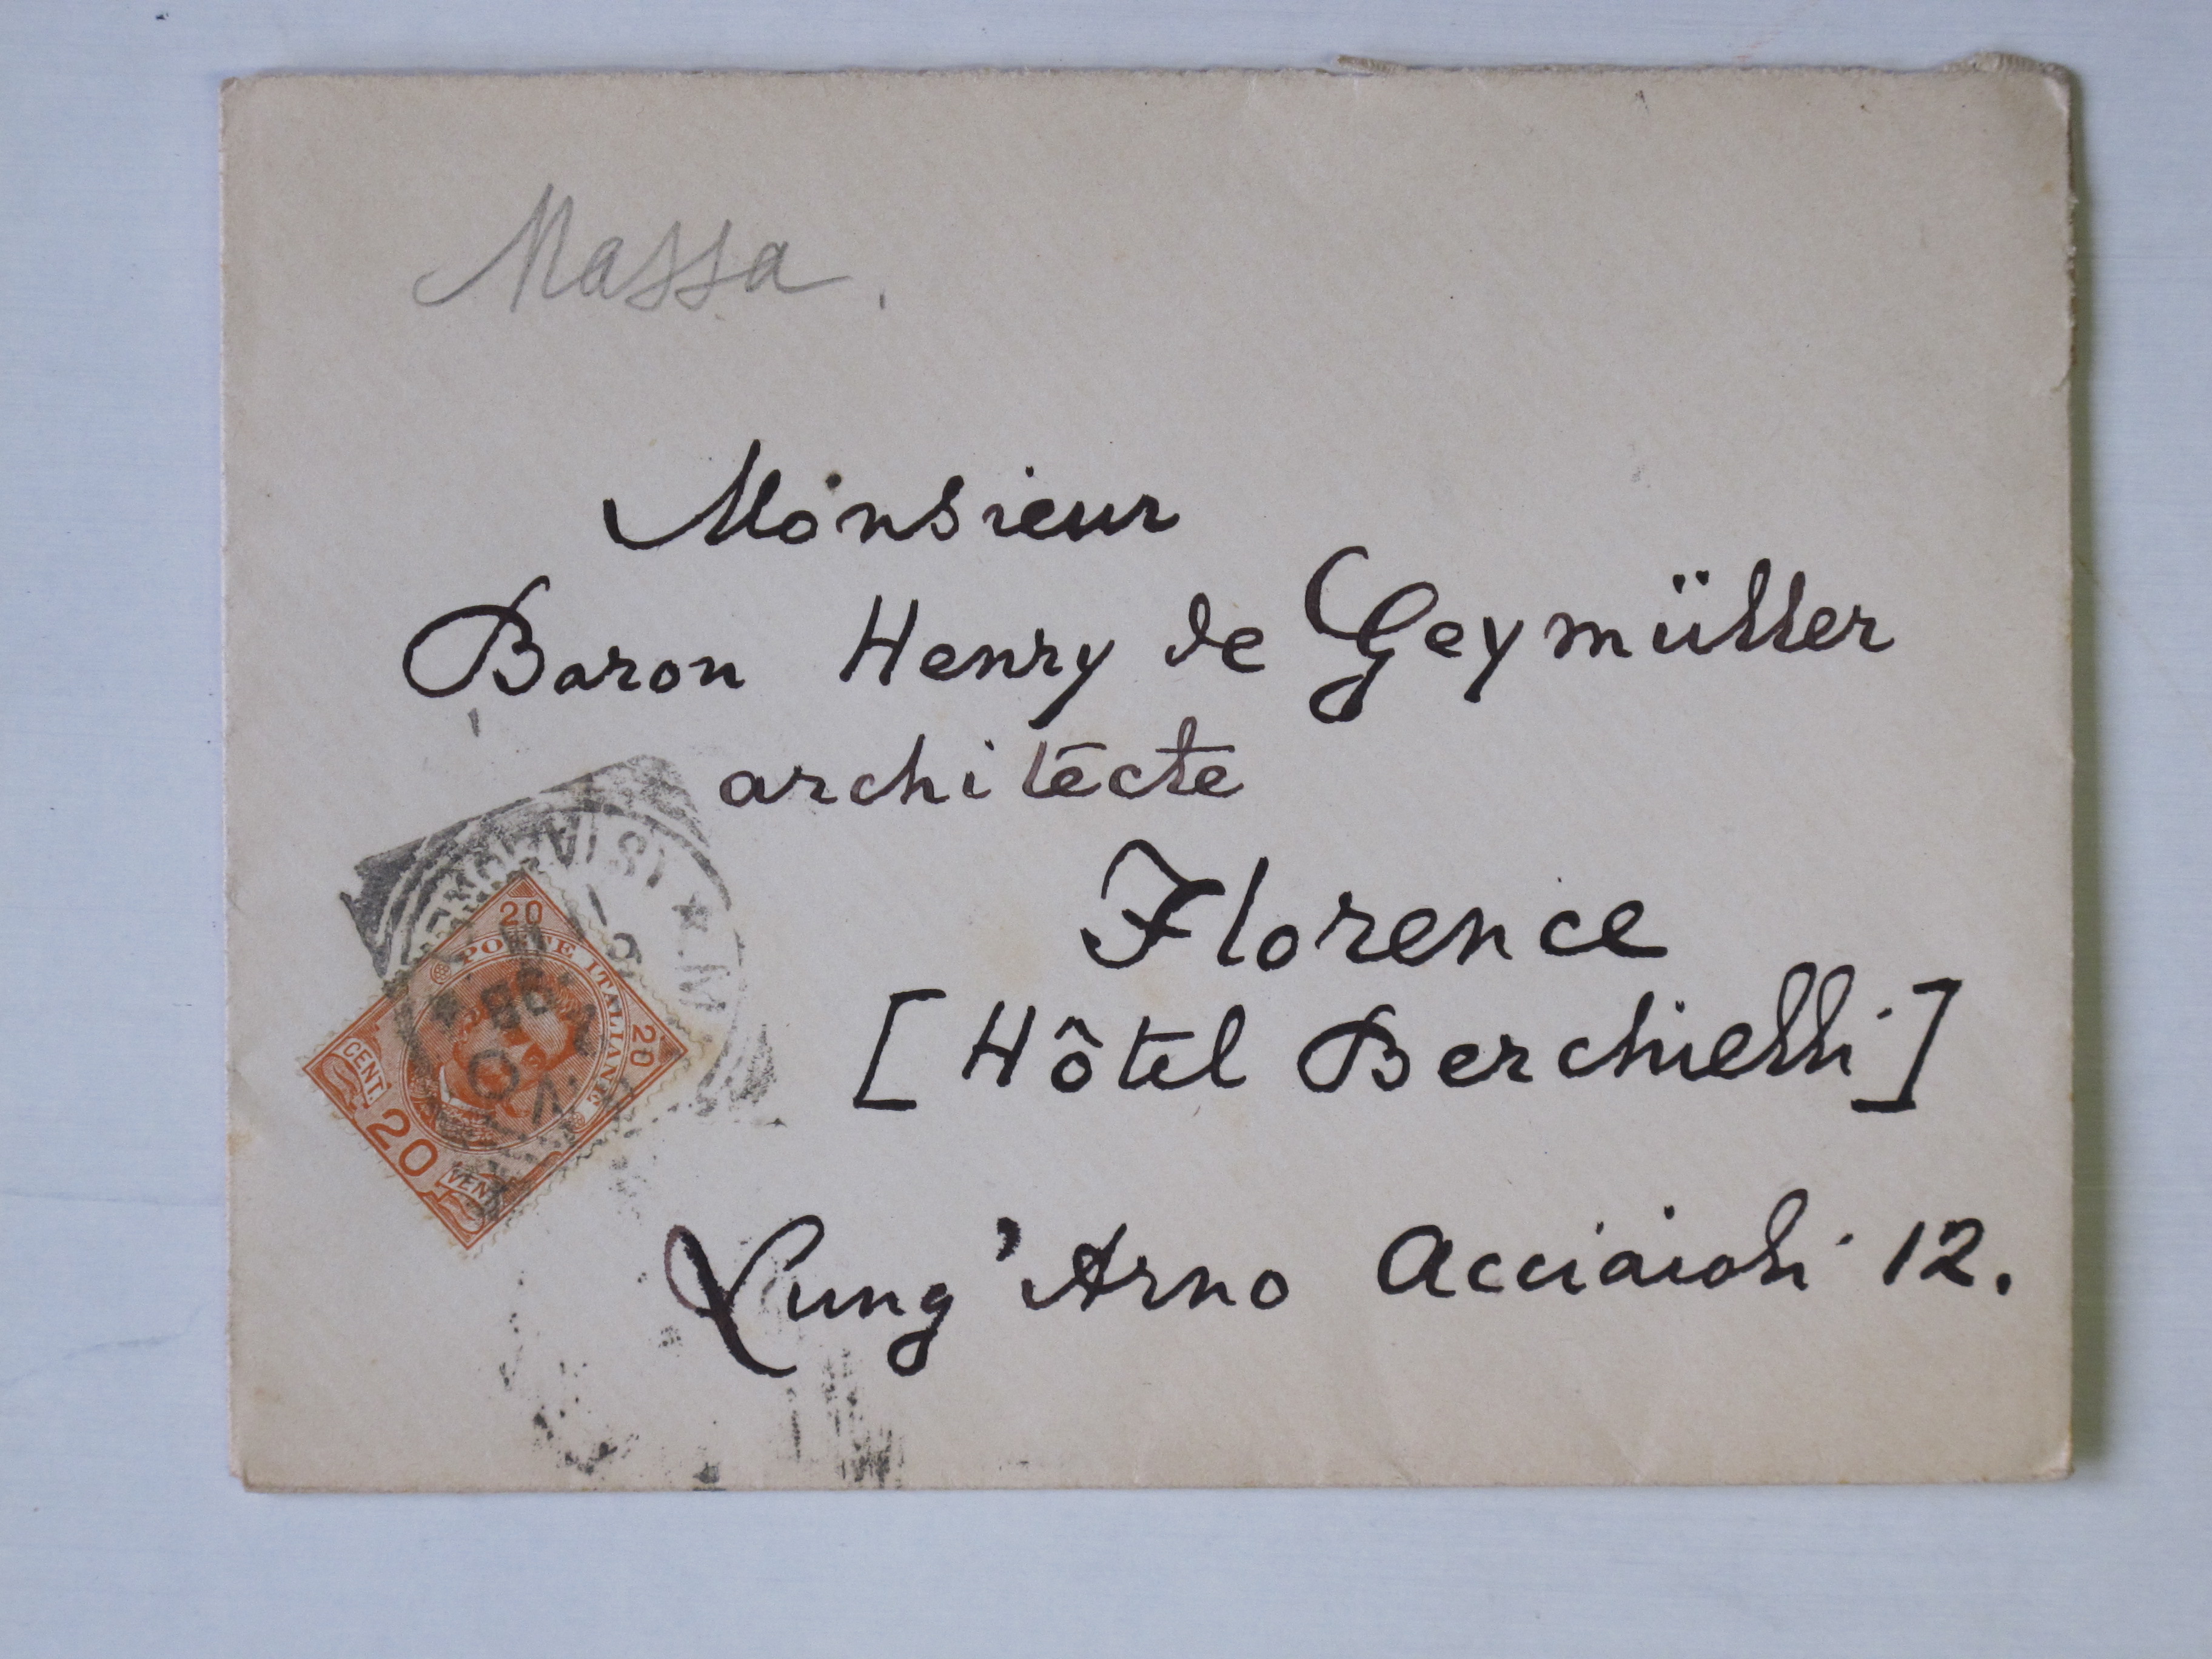 Massa.
Monsieur
Baron Henry de Geymüller
architecte
Florence
[Hôtel Berchielli]
Lung'Arno Acciaioli 12.
20
POSTE ITALIANE
20
CENT.
20
VENTI